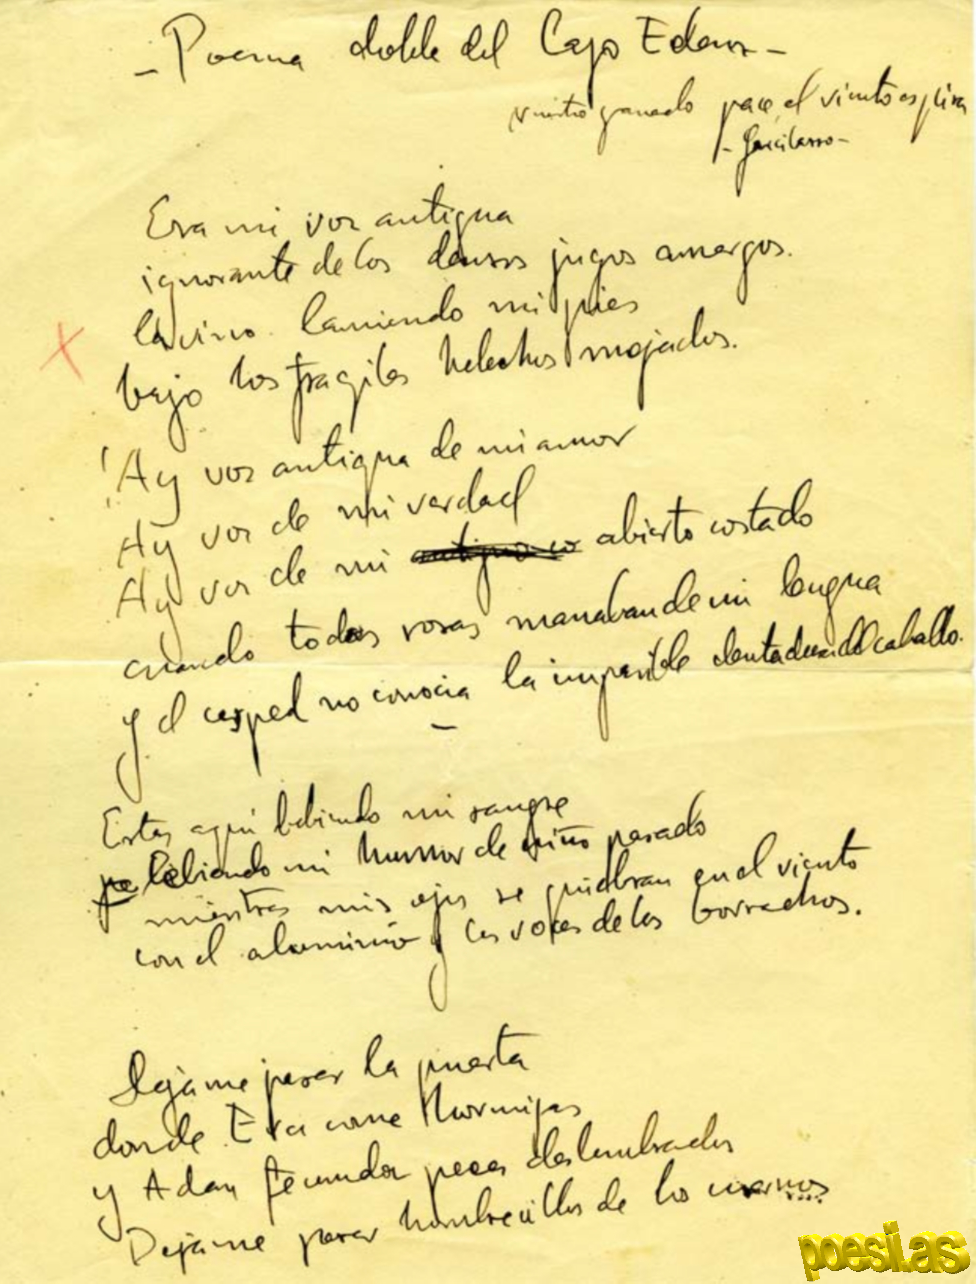 - Poema doble del Lago Edem -
Nuestro ganado pace, el viento espira
- Garcilasso -
Era mi voz antigua
ignorante de los densos jugos amargos.
La vino lamiendo mis pies
bajo los fragiles helechos mojados.
¡Ay voz antigua de mi amor
Ay voz de mi verdad
Ay voz de mi abierto costado
cuando todas rosas manaban de mi lengua
y el cesped no conocia la impasible dentadura del caballo.
Estas aqui bebiendo mi sangre
bebiendo mi humor de niño pasado
mientras mis ojos se quiebran en el viento
con el aluminio y las voces de los borrachos.
Dejame pasar la puerta
donde Eva come hormigas
y Adan fecunda peces deslumbrados
Dejame pasar hombrecillos de los cuernos
poesi.as